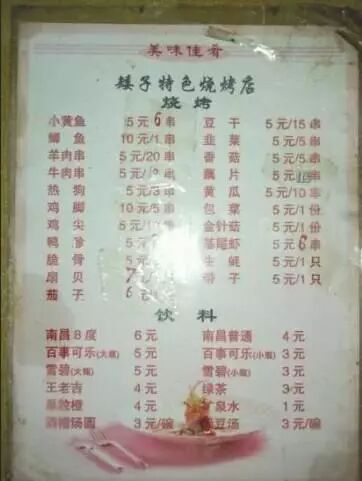 美味佳肴
矮子特色烧烤店
烧烤
小黄鱼 5元 6串 豆干 5元/15串
鲫鱼 10元/1串 韭菜 5元/5串
羊肉串 5元/20串 香菇 5元/5串
牛肉串 5元/ 串 藕片 5元/ 串
热狗 5元/3串 黄瓜 5元/10串
鸡脚 10元/5串 包菜 5元/1份
鸡尖 10元/ 串 金针菇 5元/1份
鸭胗 5元/2串 基尾虾 5元 6串
脆骨 5元/ 串 生蚝 5元/1只
扇贝 7 带子 5元/1只
茄子 6
饮料
南昌8度 6元 南昌普通 4元
百事可乐(大瓶) 5元 百事可乐(小瓶) 3元
雪碧(大瓶) 5元 雪碧(小瓶) 3元
王老吉 4元 绿茶 3元
果粒橙 4元 矿泉水 1元
酒糟汤圆 3元/碗 绿豆汤 3元/碗